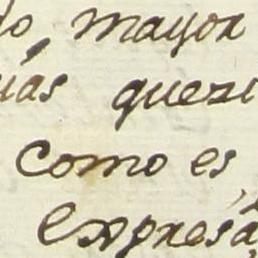 do, mayor
ias quezi
Como es,
Expresa